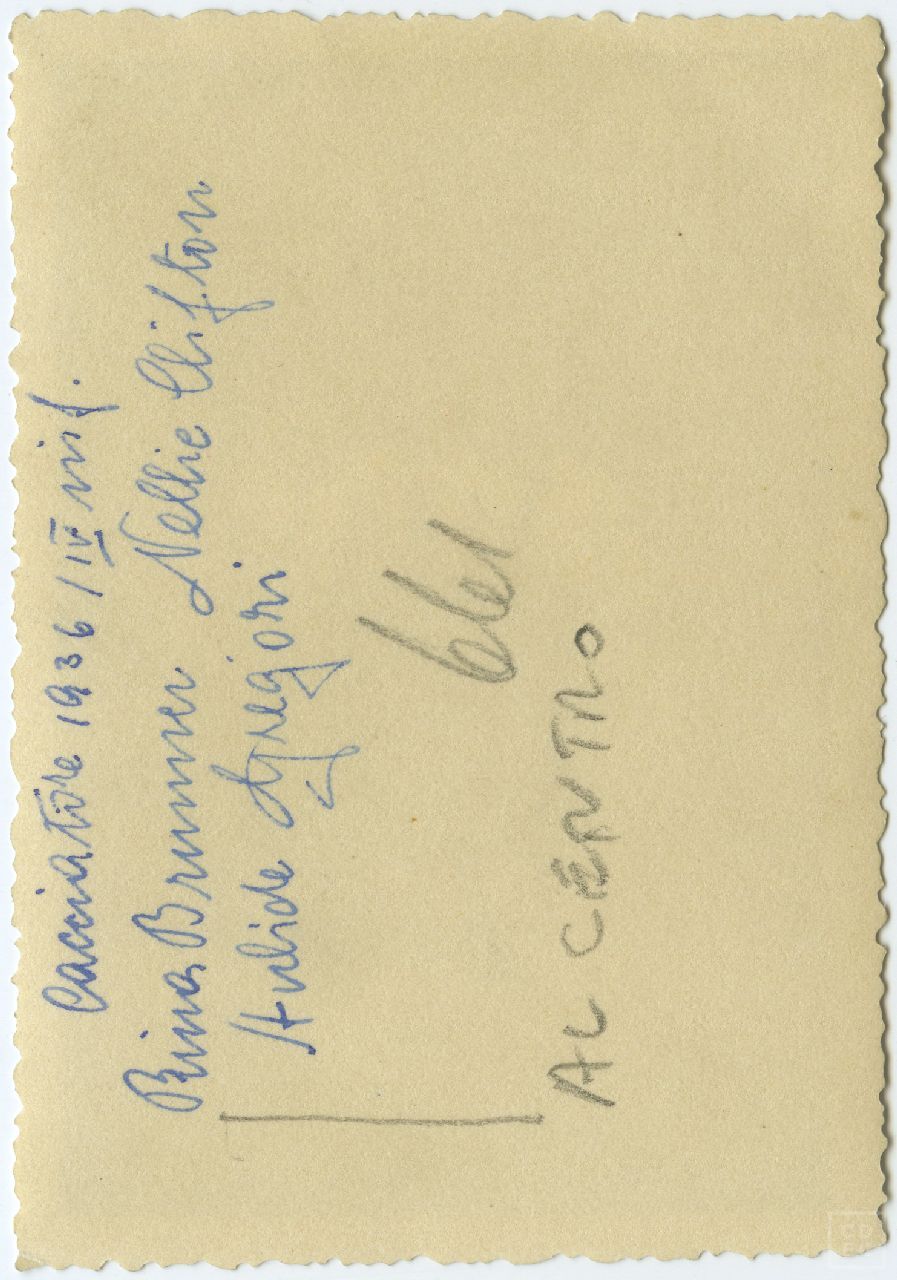 Cacciatore 1936 / IV inf.
Rina Brunner Nellie Clifton
Alide Gregori
661
AL CENTRO